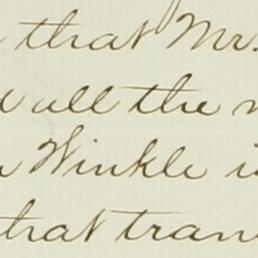 that Mr.
all the
Winkle
that tran